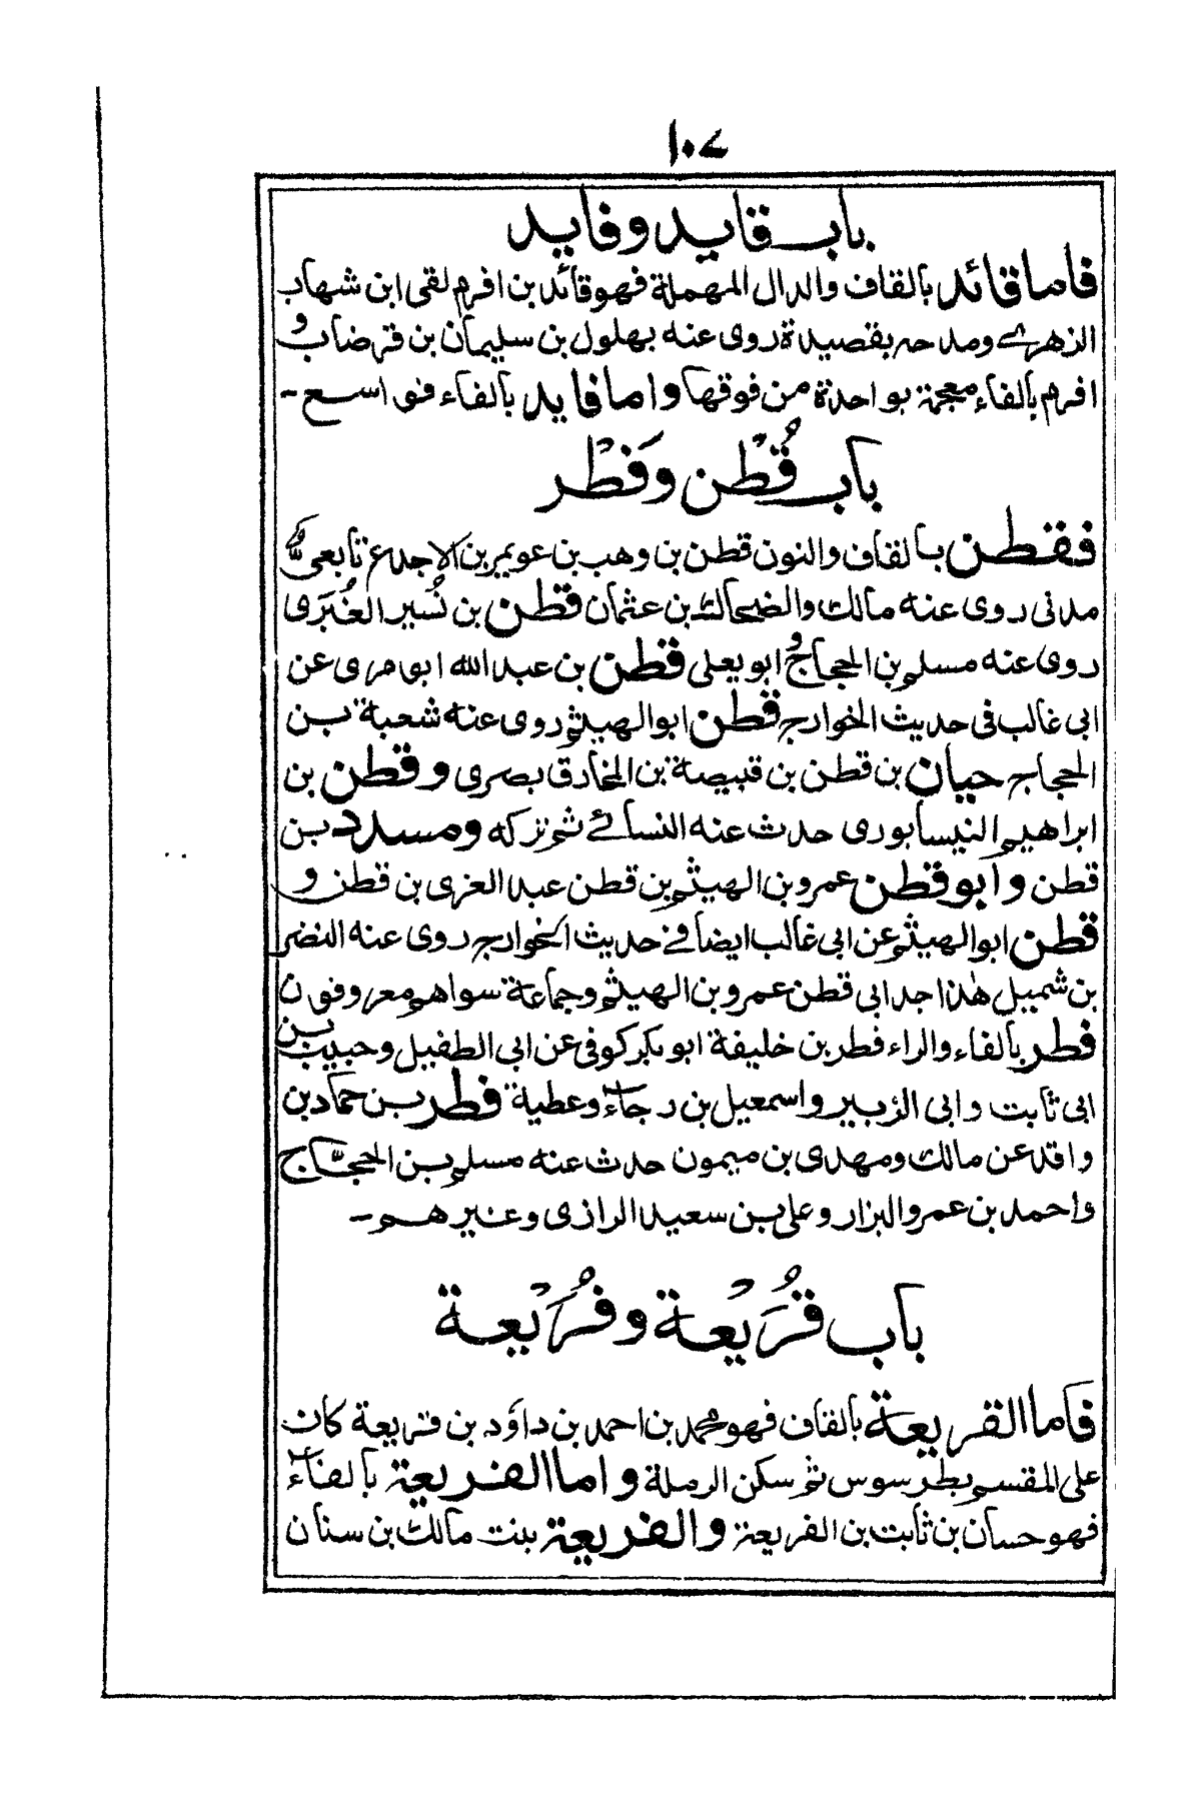 ١٠٧
باب قايد وفايد
فاما قائد بالقاف والدال المهملة فهو قائد بن افرم لقى ابن شهاب
الزهرے ومدحه بقصيدة روى عنه بهلول بن سليمان بن قرضاب و
افرم بالفاء معجمة بواحدة من فوقها واما فايد بالفاء فواسع -
باب قُطْن وَفطْر
فقطن بالقاف والنون قطن بن وهب بن عويمر بن الاجدع تابعى
مدنى روى عنه مالك والضحاك بن عثمان قطن بن نُسَير الغُبَرى
روى عنه مسلم بن الحجاج وابو يعلى قطن بن عبد الله ابو مرى عن
ابى غالب فى حديث الخوارج قطن ابو الهيثم روى عنه شعبة بن
الحجاج حيان بن قطن بن قبيصة بن المخارق بصرى وقطن بن
ابراهيم النيسابورى حدث عنه النسائے ثم تركه ومسدد بن
قطن وابو قطن عمرو بن الهيثم بن قطن عبد العزى بن قطن و
قطن ابو الهيثم عن ابى غالب ايضا فے حديث الخوارج روى عنه النضر
بن شميل هٰذا جد ابى قطن عمرو بن الهيثم وجماعة سواهم معروفون
فطر بالفاء والراء فطر بن خليفة ابو بكر كوفى عن ابى الطفيل وحبيب بن
ابى ثابت وابى الزبير واسمعيل بن رجاء وعطية فطر بن حماد بن
واقد عن مالك ومهدى بن ميمون حدث عنه مسلم بن الحجّاج
واحمد بن عمرو البزار وعلى بن سعيد الرازى وغيرهم -
باب قُرَيْعة وفُرَيْعة
فاما القريعة بالقاف فهو محمد بن احمد بن داوَد بن قريعة كان
على المقسم بطرسوس ثم سكن الرملة واما الفريعة بالفاء
فهو حسان بن ثابت بن الفريعة والفريعة بنت مالك بن سنان